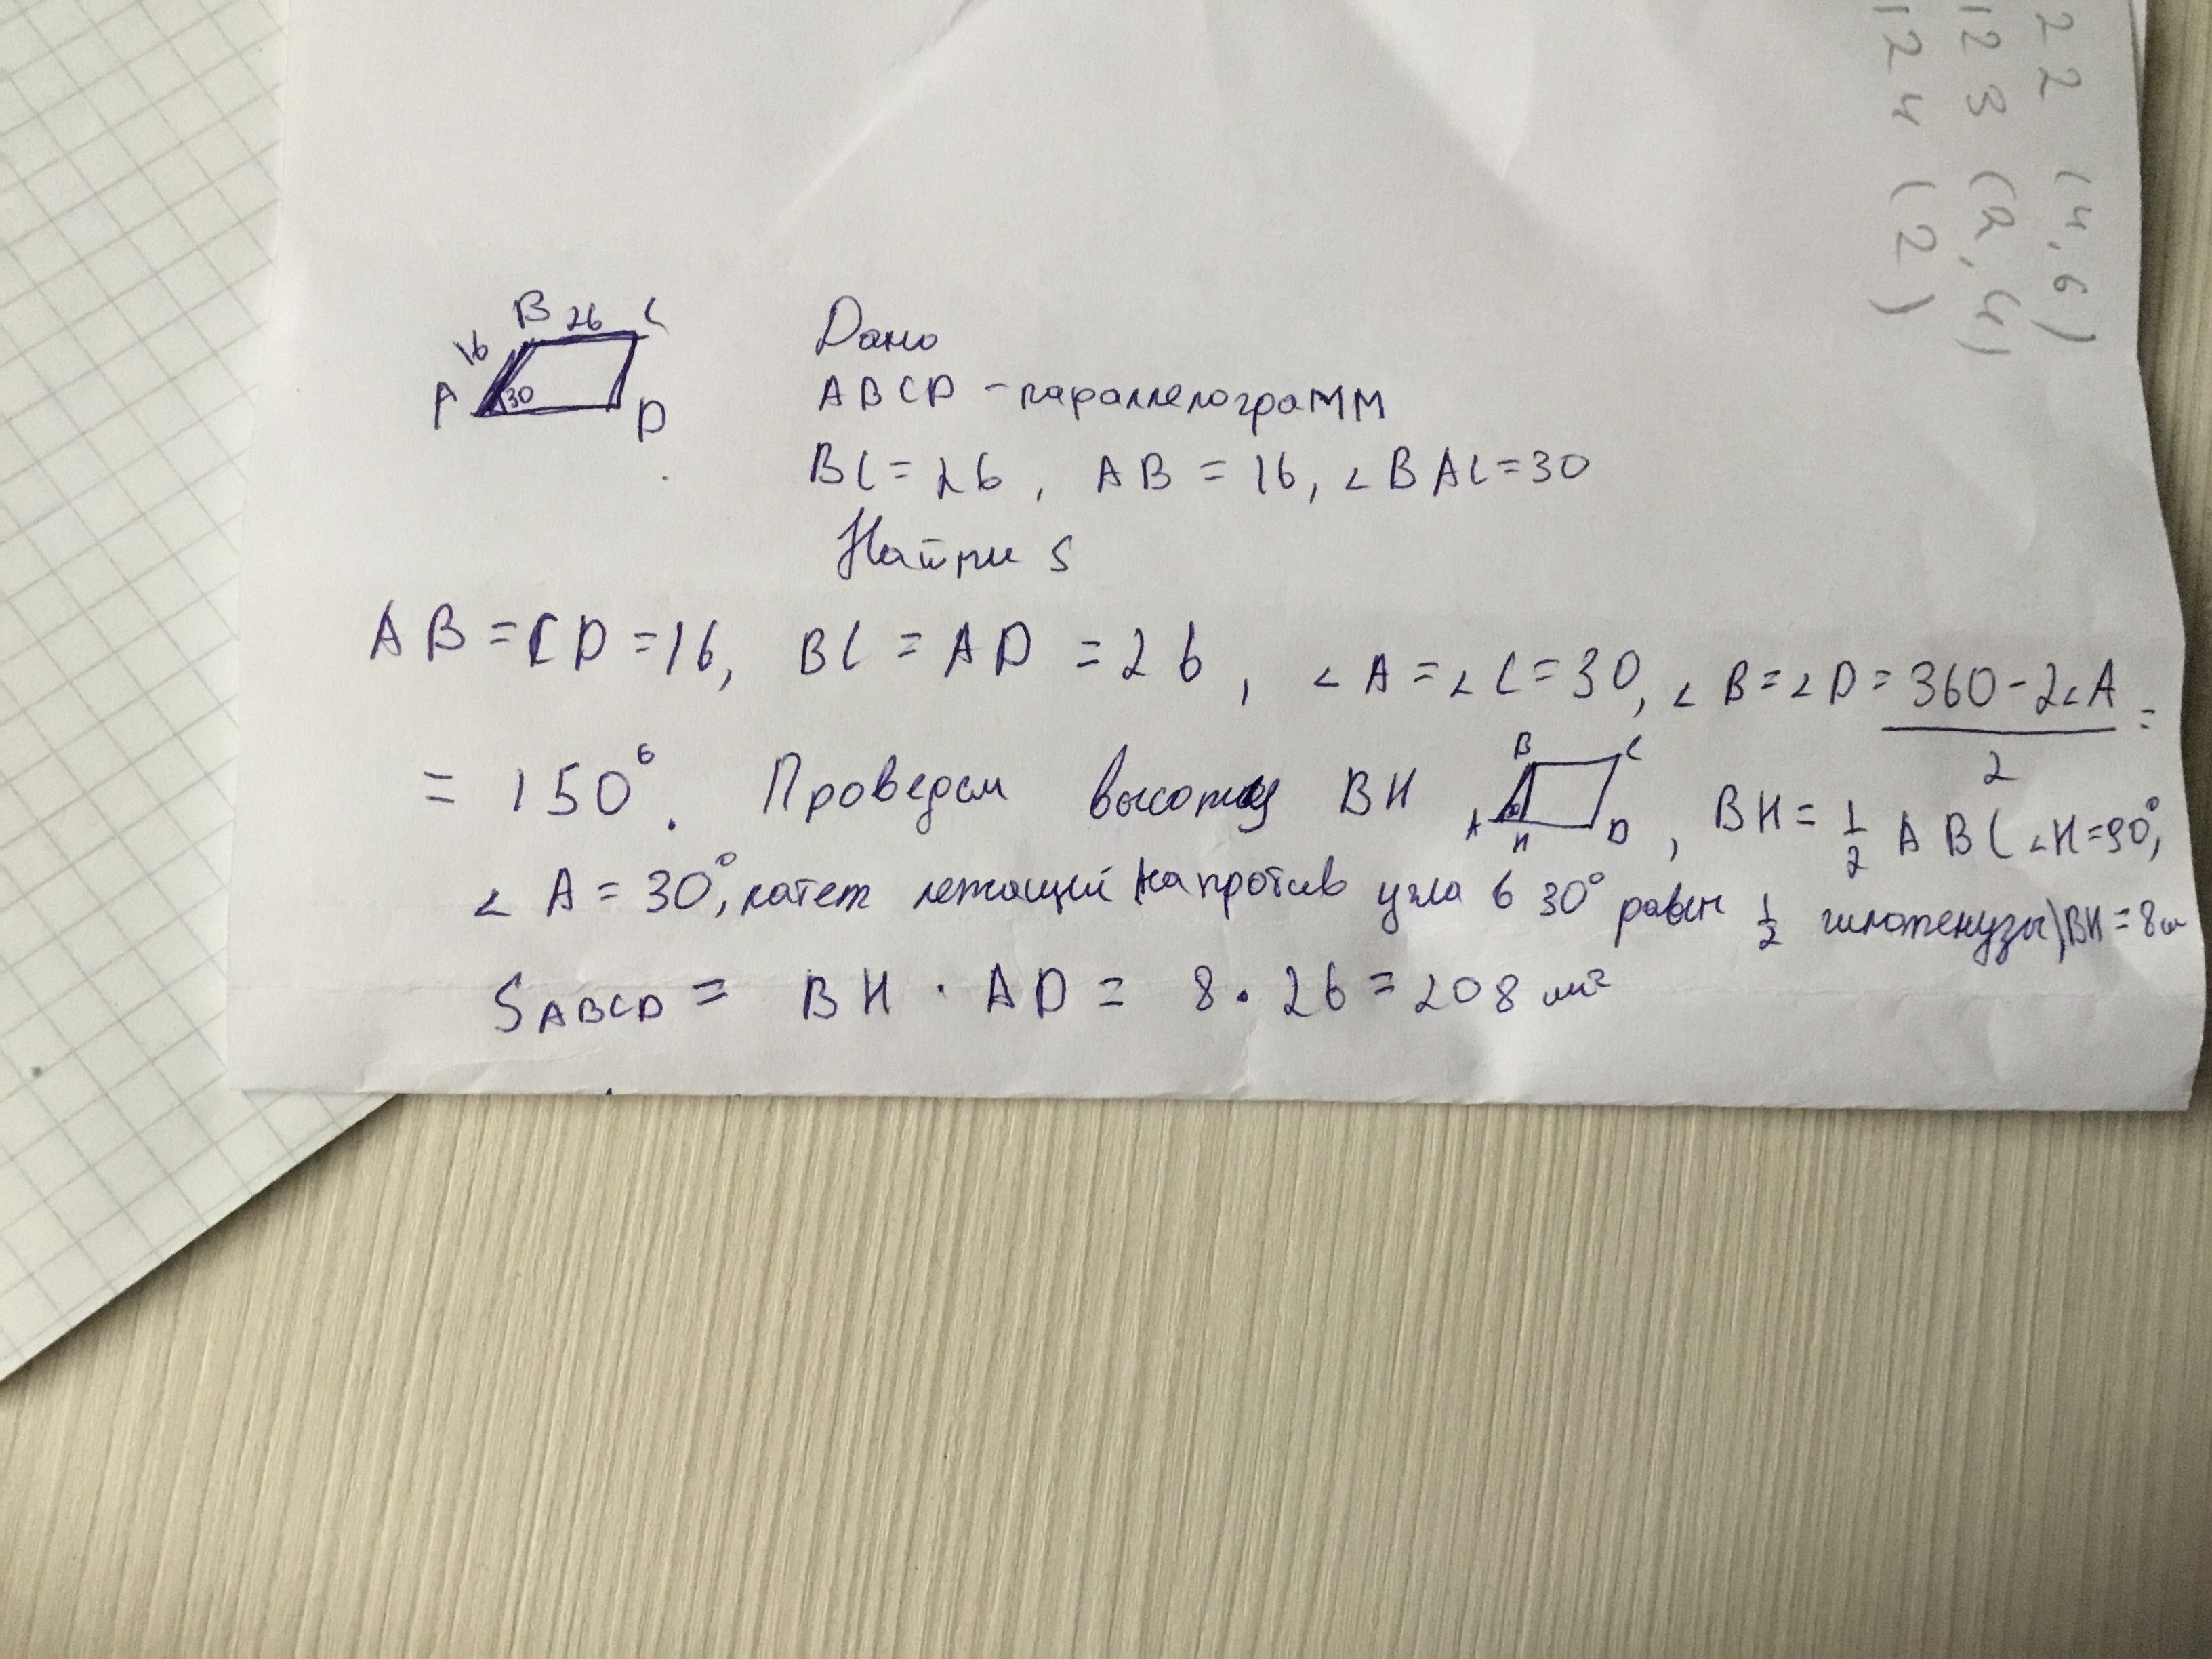 B 26 C
16
A 30
D
Дано
ABCD - параллелограмм
BC = 26, AB = 16, ∠BAC = 30
Найти S
AB = CD = 16, BC = AD = 26, ∠A = ∠C = 30, ∠B = ∠D = (360 - 2∠A)/2 =
= 150°. Проведем высоту BH B C A H D, BH = 1/2 AB (∠H = 90°,
∠A = 30°, катет лежащий напротив угла в 30° равен 1/2 гипотенузы) BH = 8см
S ABCD = BH · AD = 8 · 26 = 208 см²
22 (4,6)
123 (2,4)
124 (2)